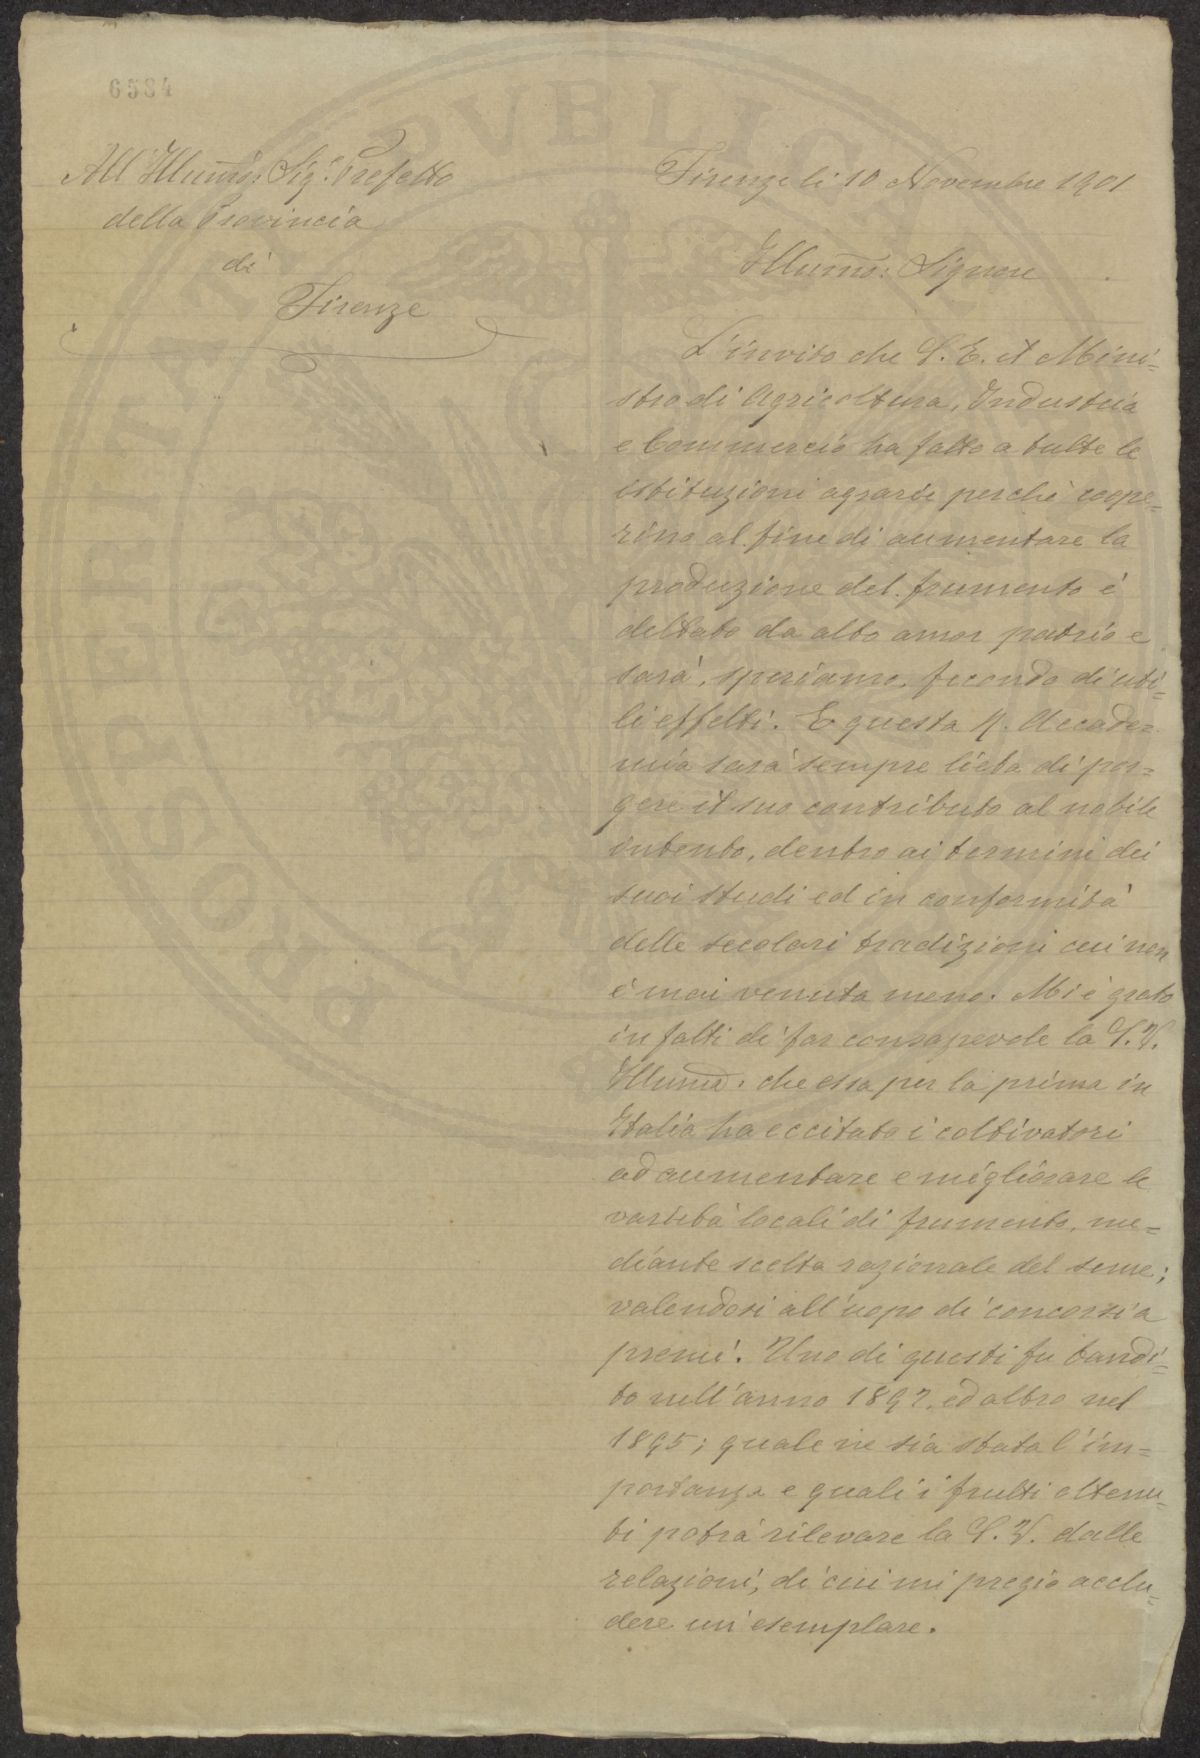 6584
All'Illumo: Sigr. Prefetto
della Provincia
di
Firenze
Firenze li 10 Novembre 1901
Illumo: Signore
L'invito che S. E. il Mini=
stro di Agricoltura, Industria
e Commercio ha fatto a tutte le
istituzioni agrarie perchè coope=
rino al fine di aumentare la
produzione del frumento è
dettato da alto amor patrio e
sarà, speriamo, fecondo di uti=
li effetti. E questa R. Accade=
mia sarà sempre lieta di por=
gere il suo contributo al nobile
intento, dentro ai termini dei
suoi studi ed in conformità
delle secolari tradizioni cui non
è mai venuta meno. Mi è grato
in fatti di far consapevole la S. V.
Illuma. che essa per la prima in
Italia ha eccitato i coltivatori
ad aumentare e migliorare le
varietà locali di frumento, me=
diante scelta razionale del seme;
valendosi all'uopo di concorsi a
premi. Uno di questi fu bandi=
to nell'anno 1892, ed altro nel
1895; quale ne sia stata l'im=
portanza e quali i frutti ottenu=
ti potrà rilevare la S. V. dalle
relazioni, di cui mi pregio acclu=
dere un esemplare.
PROSPERITATI PVBLICAE